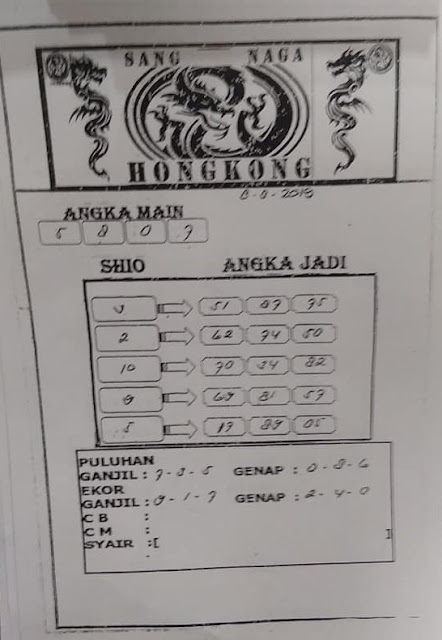 SANG NAGA
HONGKONG
ANGKA MAIN
5 8 0 7
SHIO ANGKA JADI
51 97 75
2 62 74 50
10 70 24 82
9 69 81 57
5 17 89 05
PULUHAN
GANJIL : 7-9-5 GENAP : 0-8-6
EKOR
GANJIL : 9-1-7 GENAP : 2-4-0
C B :
C M :
SYAIR :[ ]